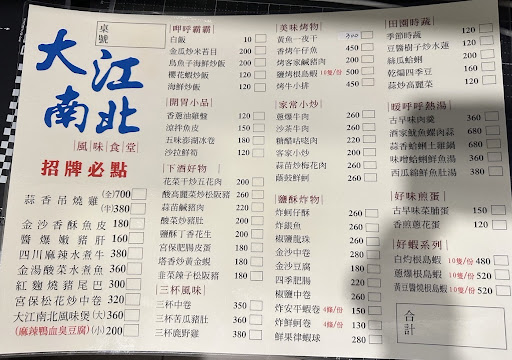 桌號
大江南北
風味食堂
招牌必點
蒜香吊燒雞 (全)700
(半)380
金沙香酥魚皮 180
醬爆嫩豬肝 160
四川麻辣水煮牛 380
金湯酸菜水煮魚 360
紅麴燒豬尾巴 300
宮保松花炒中卷 320
大江南北風味煲(大)360
(麻辣鴨血臭豆腐)(小)200
呷呼霸霸
白飯 10
金瓜炒米苔目 200
烏魚子海鮮炒飯 200
櫻花蝦炒飯 120
海鮮炒飯 120
開胃小品
香蔥油雞盤 120
涼拌魚皮 150
五味澎湖冰卷 180
沙拉鮮筍 120
下酒好物
花菜干炒五花肉 200
酸高麗菜炒松阪豬 220
蒜苗鹹豬肉 220
酸菜炒豬肚 220
鹽酥丁香花生 200
宮保肥腸皮蛋 180
塔香炒黃金蜆 180
韭菜辣子松阪豬 180
三杯風味
三杯中卷 350
三杯苦瓜豬肚 360
三杯鹿野雞 380
美味烤物
黃魚一夜干 300
香烤午仔魚 450
烤客家鹹豬肉 200
鹽烤根島蝦 10隻/份 500
烤牛小排 450
家常小炒
蔥爆牛肉 260
沙茶牛肉 260
糖醋咕咾肉 260
客家小炒 260
蒜苗炒梅花肉 260
蔭豉鮮蚵 260
鹽酥炸物
炸蚵仔酥 260
炸銀魚 260
椒鹽龍珠 260
金沙中卷 260
金沙豆腐 180
四季肥腸 220
椒鹽中卷 260
炸安平蝦卷 4條/份 150
炸鮮蚵卷 4條/份 130
鮮果律蝦球 280
田園時蔬
季節時蔬 120
豆醬樹子炒水蓮 120
絲瓜蛤蜊 200
乾煸四季豆 160
蒜炒高麗菜 120
暖呼呼熱湯
古早味肉羹 360
酒家魷魚螺肉蒜 680
蒜香蛤蜊土雞鍋 680
味噌蛤蜊鮮魚湯 360
西瓜綿鮮魚肚湯 380
好味煎蛋
古早味菜脯蛋 150
香煎蔥花蛋 120
好蝦系列
白灼根島蝦 10隻/份 480
蔥爆根島蝦 10隻/份 520
黃豆醬燒根島蝦 10隻/份 520
合計